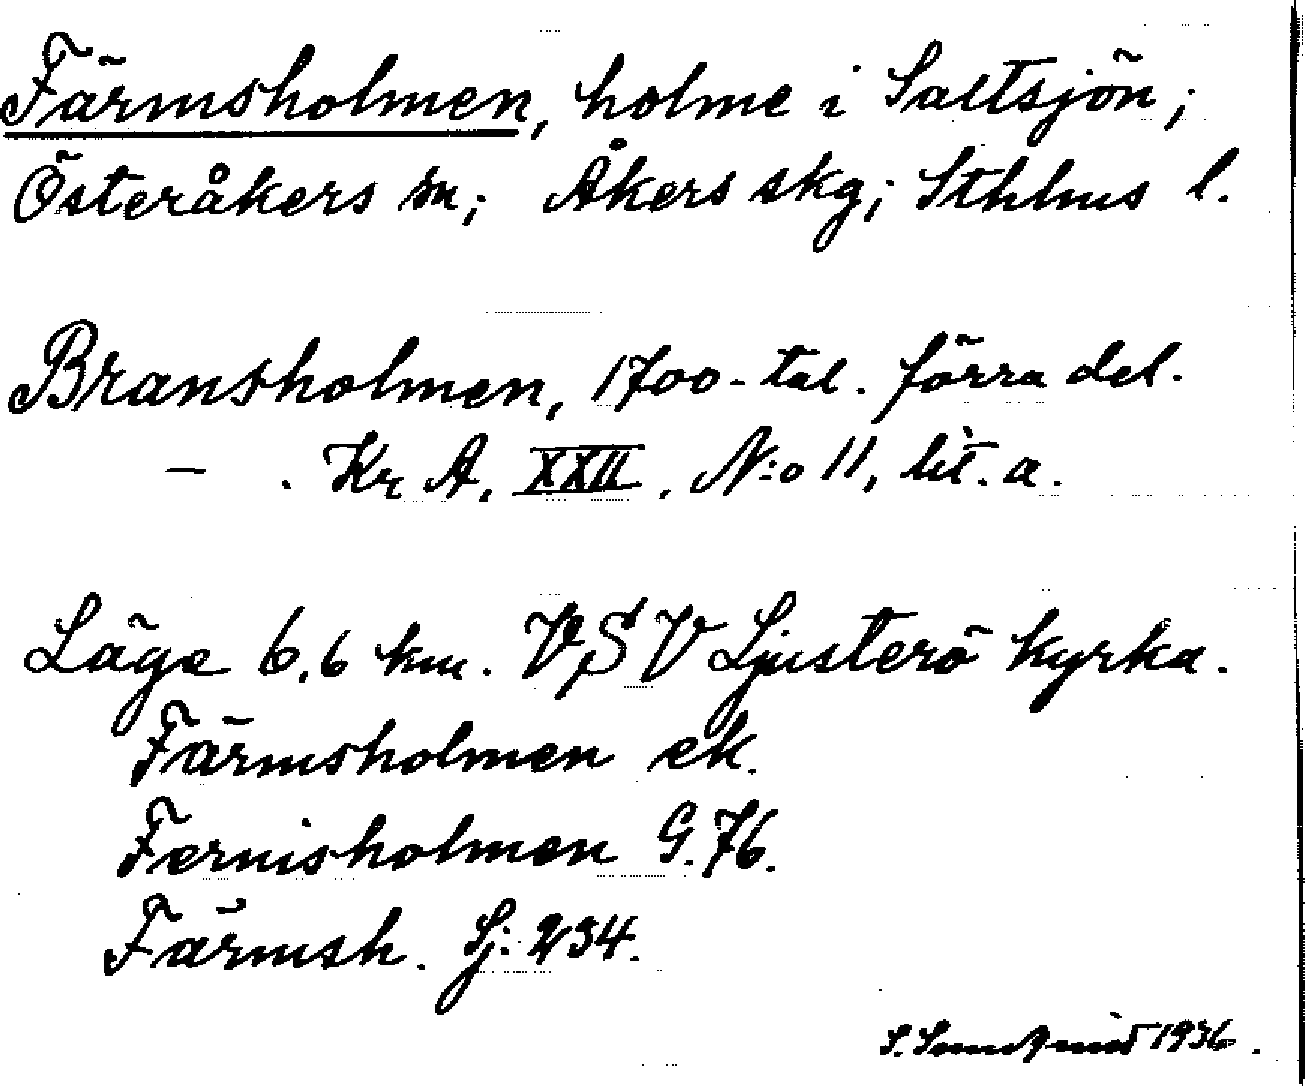 Färmsholmen, holme i Saltsjön;
Österåkers sn; Åkers skg; Sthlms l.
Bransholmen, 1700-tal. förra del.
— . Kr A. XXII. N:o 11, lit. a.
Läge 6,6 km. VSV Ljusterö kyrka.
Färmsholmen ek.
Fernisholmen G. 76.
Färmsh. Sj: 234.
S. 1936.